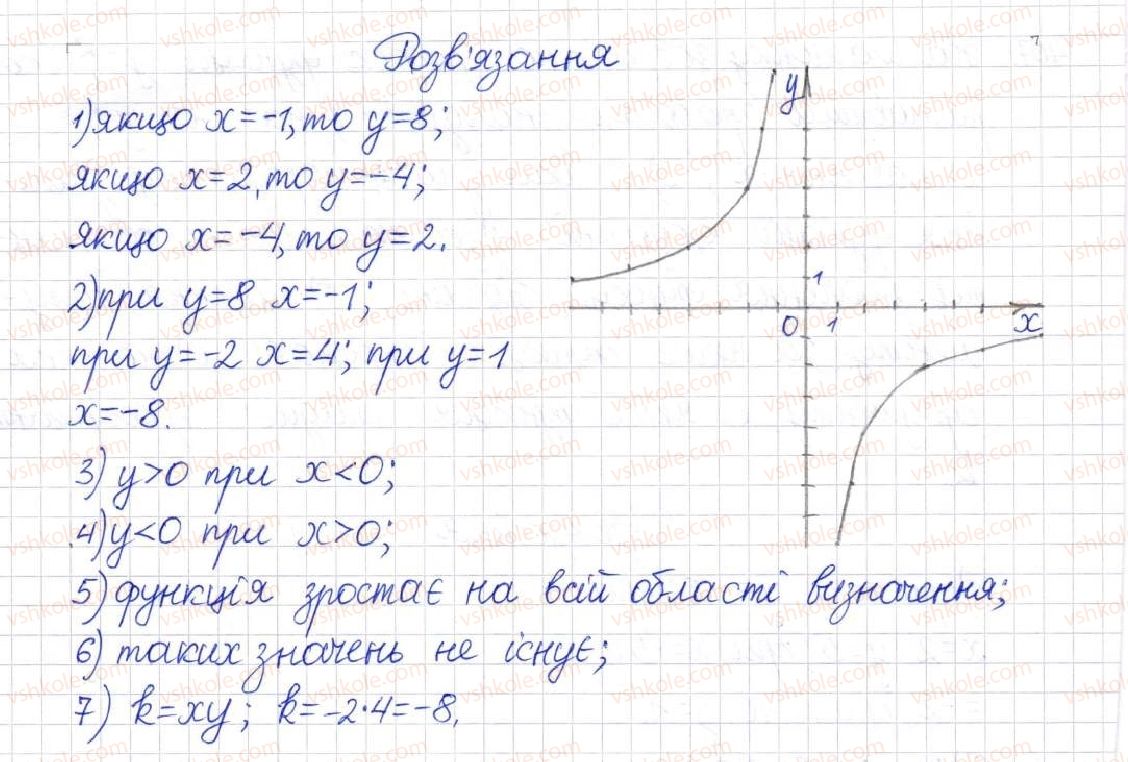 Розв'язання
1) якщо x=-1, то y=8;
якщо x=2, то y=-4;
якщо x=-4, то y=2.
2) при y=8 x=-1;
при y=-2 x=4; при y=1
x=-8.
3) y>0 при x<0;
4) y<0 при x>0;
5) функція зростає на всій області визначення;
6) таких значень не існує;
7) k=xy; k=-2·4=-8.
y
1
0 1 x
vshkole.com